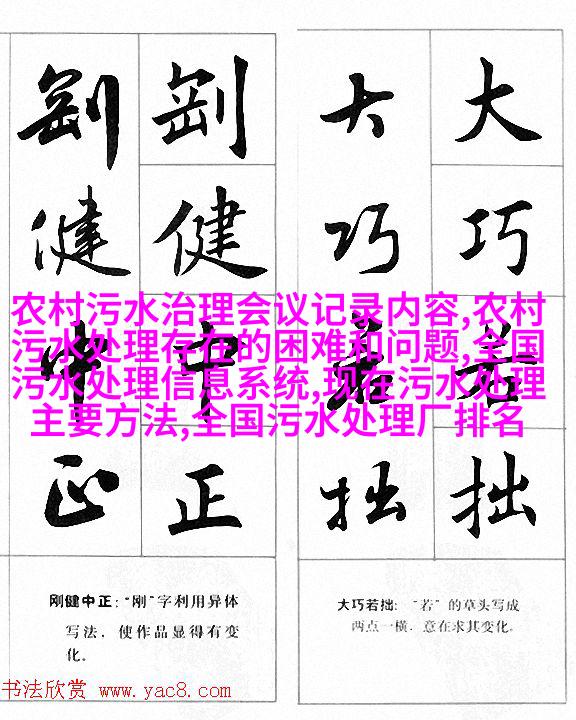 剛 剛
健 健
中 中
正 正
大 大
巧 巧
若 若
拙 拙
农村污水治理会议记录内容,农村
污水处理存在的困难和问题,全国
污水处理信息系统,现在污水处理
主要方法,全国污水处理厂排名
刚健中正:“刚”字利用异体
写法,使作品显得有变
化。
大巧若拙:“若”的草头写成
两点一横,意在求其变化。
书法欣赏 www.yac8.com